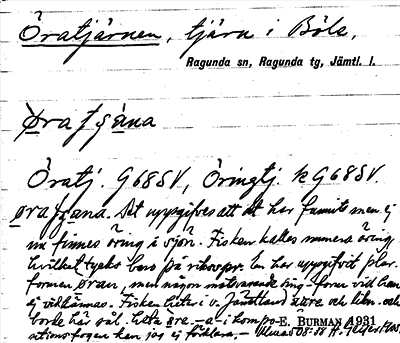 Öratjärnen, tjärn i Böle,
Ragunda sn, Ragunda tg, Jämtl. l.
Øratjęna
Öratj. G68SV, Öringtj. k G68SV.
øratjęna. Det uppgifves att det har funnits men ej
nu finnes öring i sjön. Fisken kallas numera öring
hvilket tycks bero på riksspr. En har uppgifvit plur.
formen øran, men någon motsvarande sing-form vid han
ej vidkännas. Fisken heter i v. Jämtland øure och likn. och
borde här väl heta øre. -a- i kompo-
sitionsfogen kan jag ej förklara. -
E. BURMAN 1931